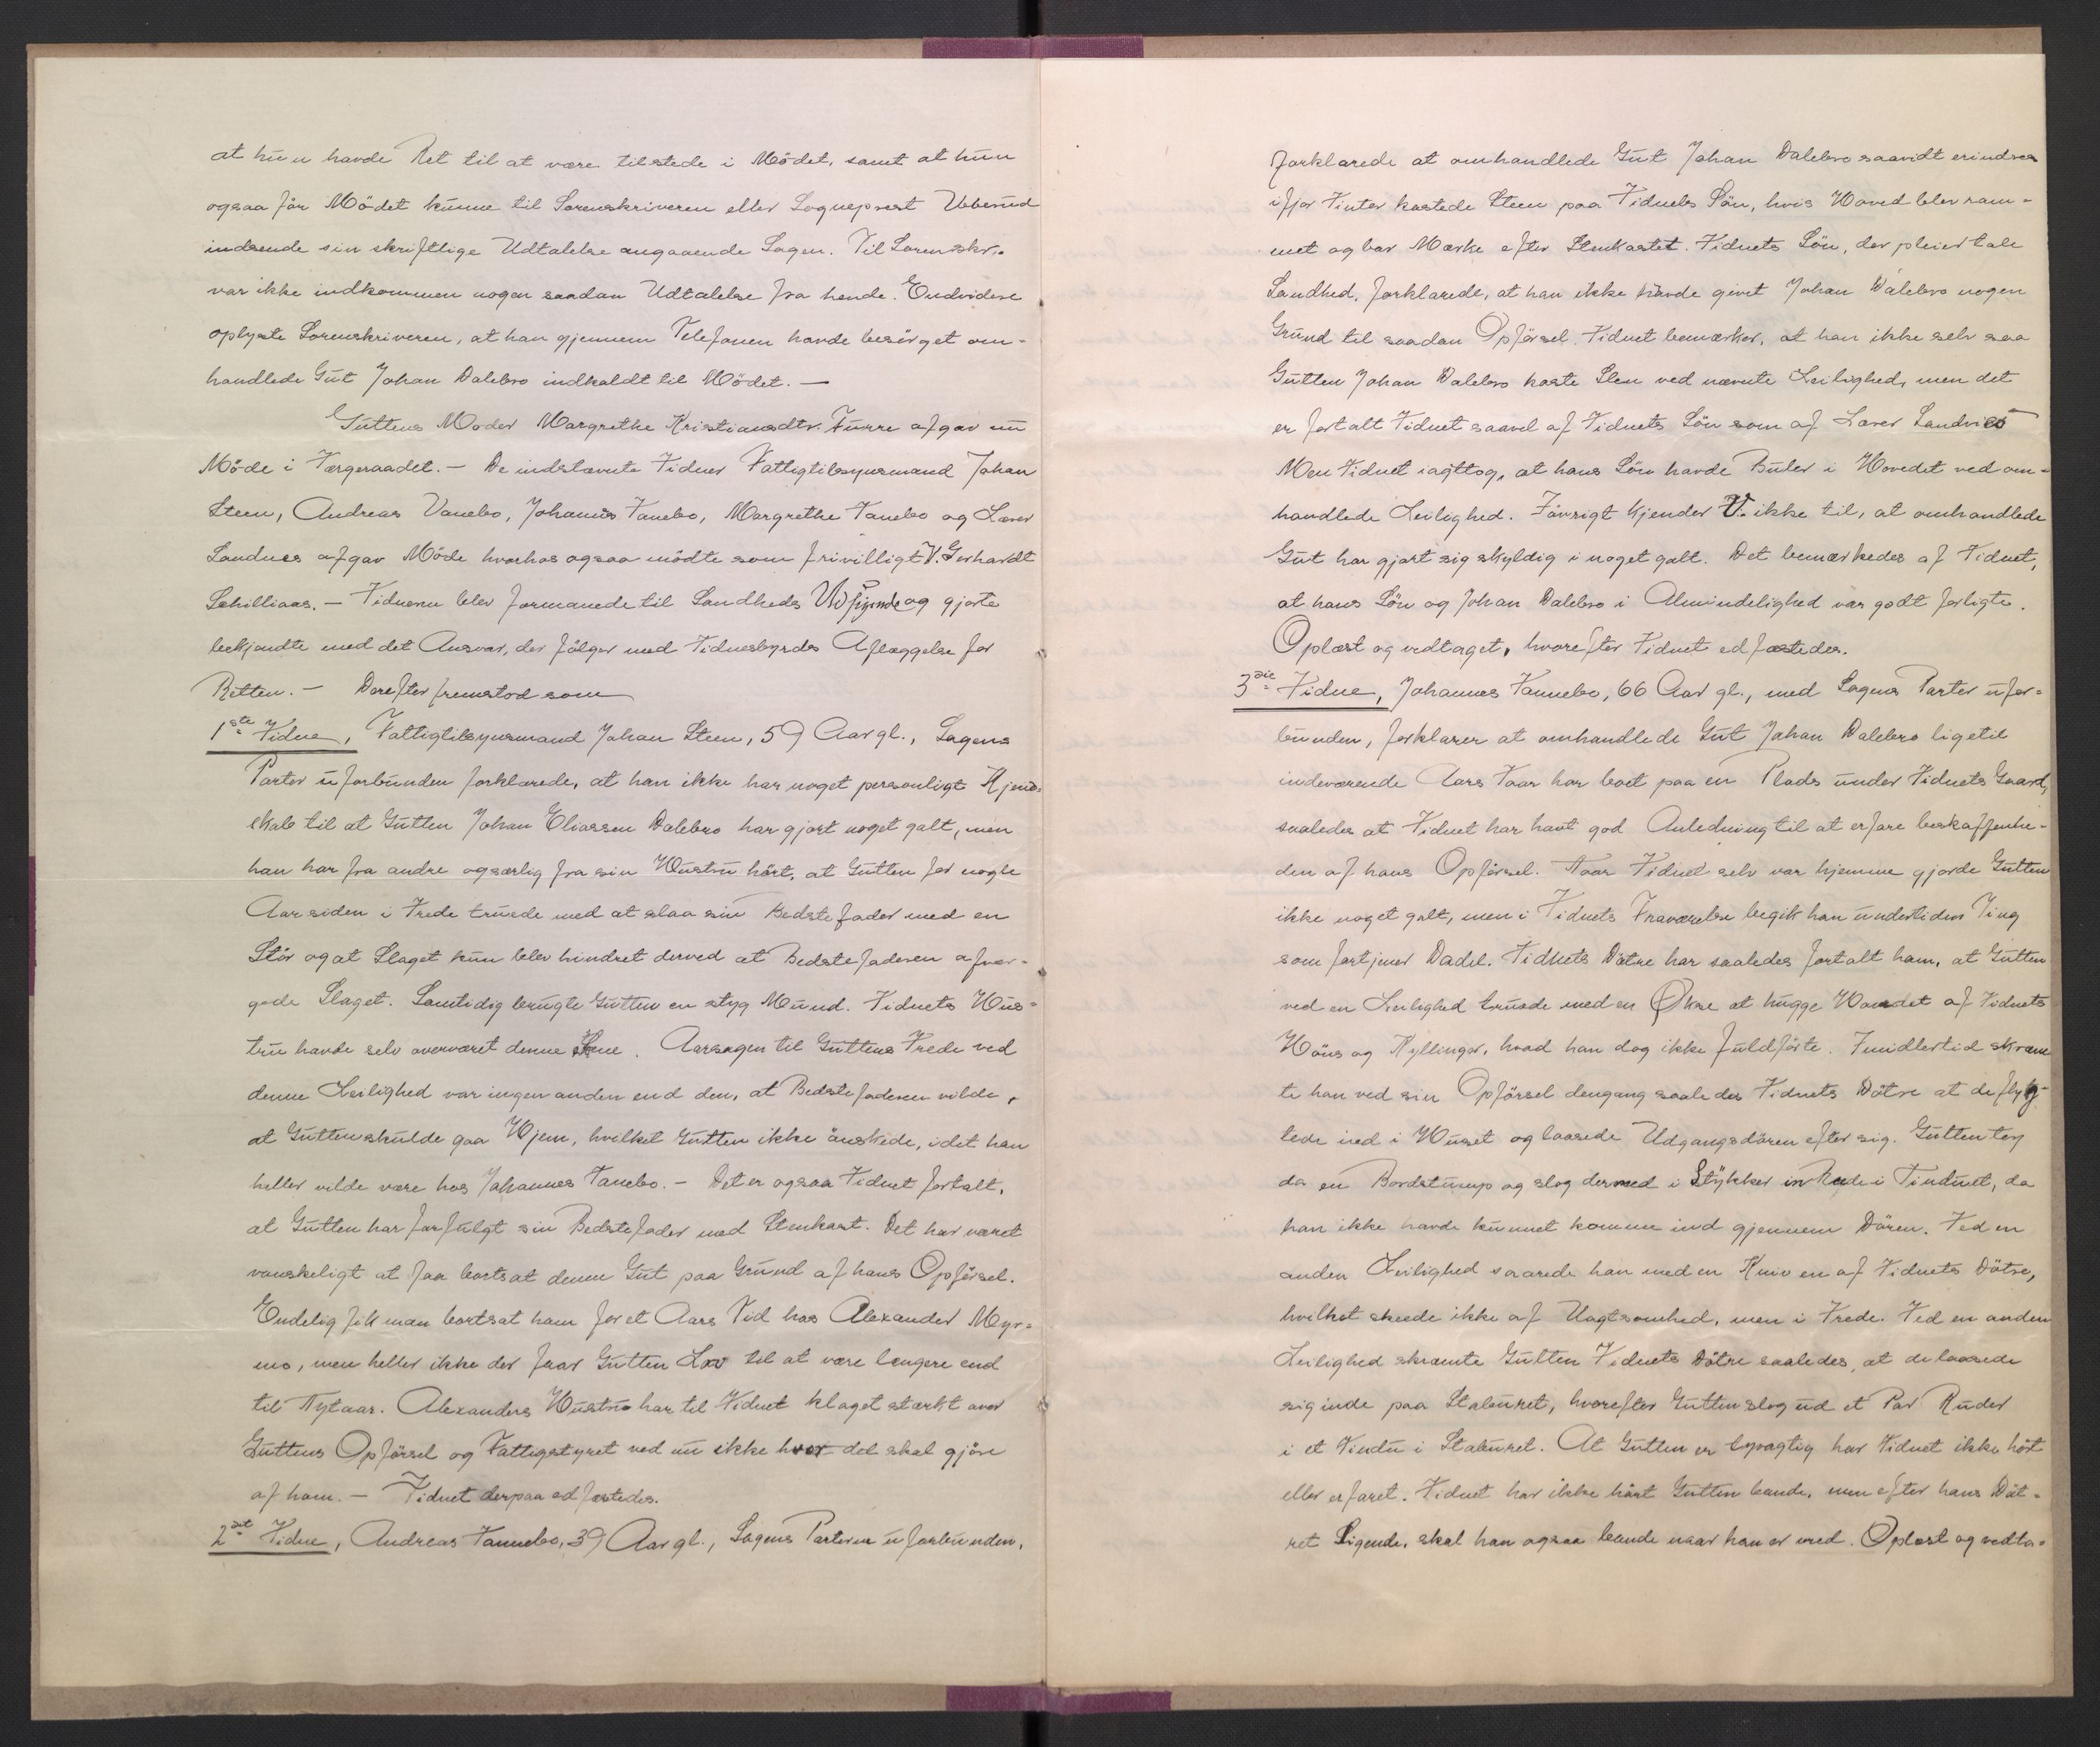 at hun havde Ret til at være tilstede i Mödet, samt at hun
ogsaa för Mödet kunne til Sorenskriveren eller Sogneprest Ubberud
indsende sin skriftlige Udtalelse angaaende Sagen. Til Sorenskr.
var ikke indkommen nogen saadan Udtalelse fra hende. Endvidere
oplyste Sorenskriveren, at han gjennem Telefonen havde besörget om-
handlede Gut Johan Dalebro indkaldt til Mödet. —
Guttens Moder Margrethe Kristiansdtr. Furre afgav nu
Möde i Værgeraadet. — De indstævnte Vidner Fattigtilsynsmand Johan
Steen, Andreas Vanebo, Johannes Vanebo, Margrethe Vanebo og Lærer
Sandnes afgav Möde hvorhos ogsaa mödte som frivilligt V. Gerhardt
Schilliaas. — Vidnerne blev formanede til Sandheds Udsigende og gjorte
bekjendte med det Ansvar, der fölger med Vidnesbyrds Aflæggelse for
Retten. — Derefter fremstod som
1ste Vidne, Fattigtilsynsmand Johan Steen, 59 Aar gl., Sagens
Parter uforbunden forklarede, at han ikke har noget personligt Kjend-
skab til at Gutten Johan Eliassen Dalebro har gjort noget galt, men
han har fra andre og særlig fra sin Hustru hört, at Gutten for nogle
Aar siden i Vrede truede med at slaa sin Bedstefader med en
Stör og at Slaget kun blev hindret derved at Bedstefaderen afvær-
gede Slaget. Samtidig brugte Gutten en styg Mund. Vidnets Hus-
tru havde selv overværet denne Scene. Aarsagen til Guttens Vrede ved
denne Leilighed var ingen anden end den, at Bedstefaderen vilde,
at Gutten skulde gaa Hjem, hvilket Gutten ikke önskede, idet han
heller vilde være hos Johannes Vanebo. — Det er ogsaa Vidnet fortalt,
at Gutten har forfulgt sin Bedstefader med Stenkast. Det har været
vanskeligt at faa bortsat denne Gut paa Grund af hans Opförsel.
Endelig fik man bortsat ham for et Aars Tid hos Alexander Myr-
mo, men heller ikke der faar Gutten Lov til at være længere end
til Nytaar. Alexanders Hustru har til Vidnet klaget stærkt over
Guttens Opförsel og Fattigstyret ved nu ikke hvor det skal gjöre
af ham. — Vidnet derpaa edfæstedes.
2det Vidne, Andreas Vannebo, 39 Aar gl., Sagens Parterne uforbunden,
forklarede at omhandlede Gut Johan Dalebro saavidt erindres
ifjor Vinter kastede Steen paa Vidnets Sön, hvis Hoved blev ram-
met og bar Mærke efter Stenkastet. Vidnets Sön, der pleier tale
Sandhed, forklarede, at han ikke havde givet Johan Dalebro nogen
Grund til saadan Opförsel. Vidnet bemærker, at han ikke selv saa
Gutten Johan Dalebro kaste Sten ved nævnte Leilighed, men det
er fortalt Vidnet saavel af Vidnets Sön som af Lærer Sandnes
Men Vidnet iagttog, at hans Sön havde Buler i Hovedet ved om-
handlede Leilighed. Forövrigt kjender V. ikke til, at omhandlede
Gut har gjort sig skyldig i noget galt. Det bemærkedes af Vidnet,
at hans Sön og Johan Dalebro i Almindelighed var godt forligte.
Oplæst og vedtaget, hvorefter Vidnet edfæstedes.
3die Vidne, Johannes Vannebo, 66 Aar gl., med Sagens Parter ufor-
bunden, forklarer at omhandlede Gut Johan Dalebro ligetil
indeværende Aars Vaar har boet paa en Plads under Vidnets Gaard,
saaledes at Vidnet har havt god Anledning til at erfare beskaffenhe-
den af hans Opförsel. Naar Vidnet selv var hjemme gjorde Gutten
ikke noget galt, men i Vidnets Fraværelse begik han undertiden Ting
som fortjener Dadel. Vidnets Dötre har saaledes fortalt ham, at Gutten
ved en Leilighed truede med en Økse at hugge Hovedet af Vidnets
Höns og Kyllinger, hvad han dog ikke fuldförte. Imidlertid skræm
te han ved sin Opförsel dengang saaledes Vidnets Dötre at de flyg-
tede ind i Huset og laasede Udgangsdören efter sig. Gutten tog
da en Bordstump og slog dermed i Stykker en Rude i Vinduet, da
han ikke havde kunnet komme ind gjennem Dören. Ved en
anden Leilighed saarede han med en Kniv en af Vidnets Dötre,
hvilket skeede ikke af Uagtsomhed, men i Vrede. Ved en anden
Leilighed skræmte Gutten Vidnets Dötre saaledes, at de laasede
sig inde paa Staburet, hvorefter Gutten slog ud et Par Ruder
i et Vindu i Staburet. At Gutten er tyvagtig har Vidnet ikke hört
eller erfaret. Vidnet har ikke hört Gutten bande, men efter hans Döt-
res Sigende, skal han ogsaa bande naar han er vred. Oplæst og vedta-